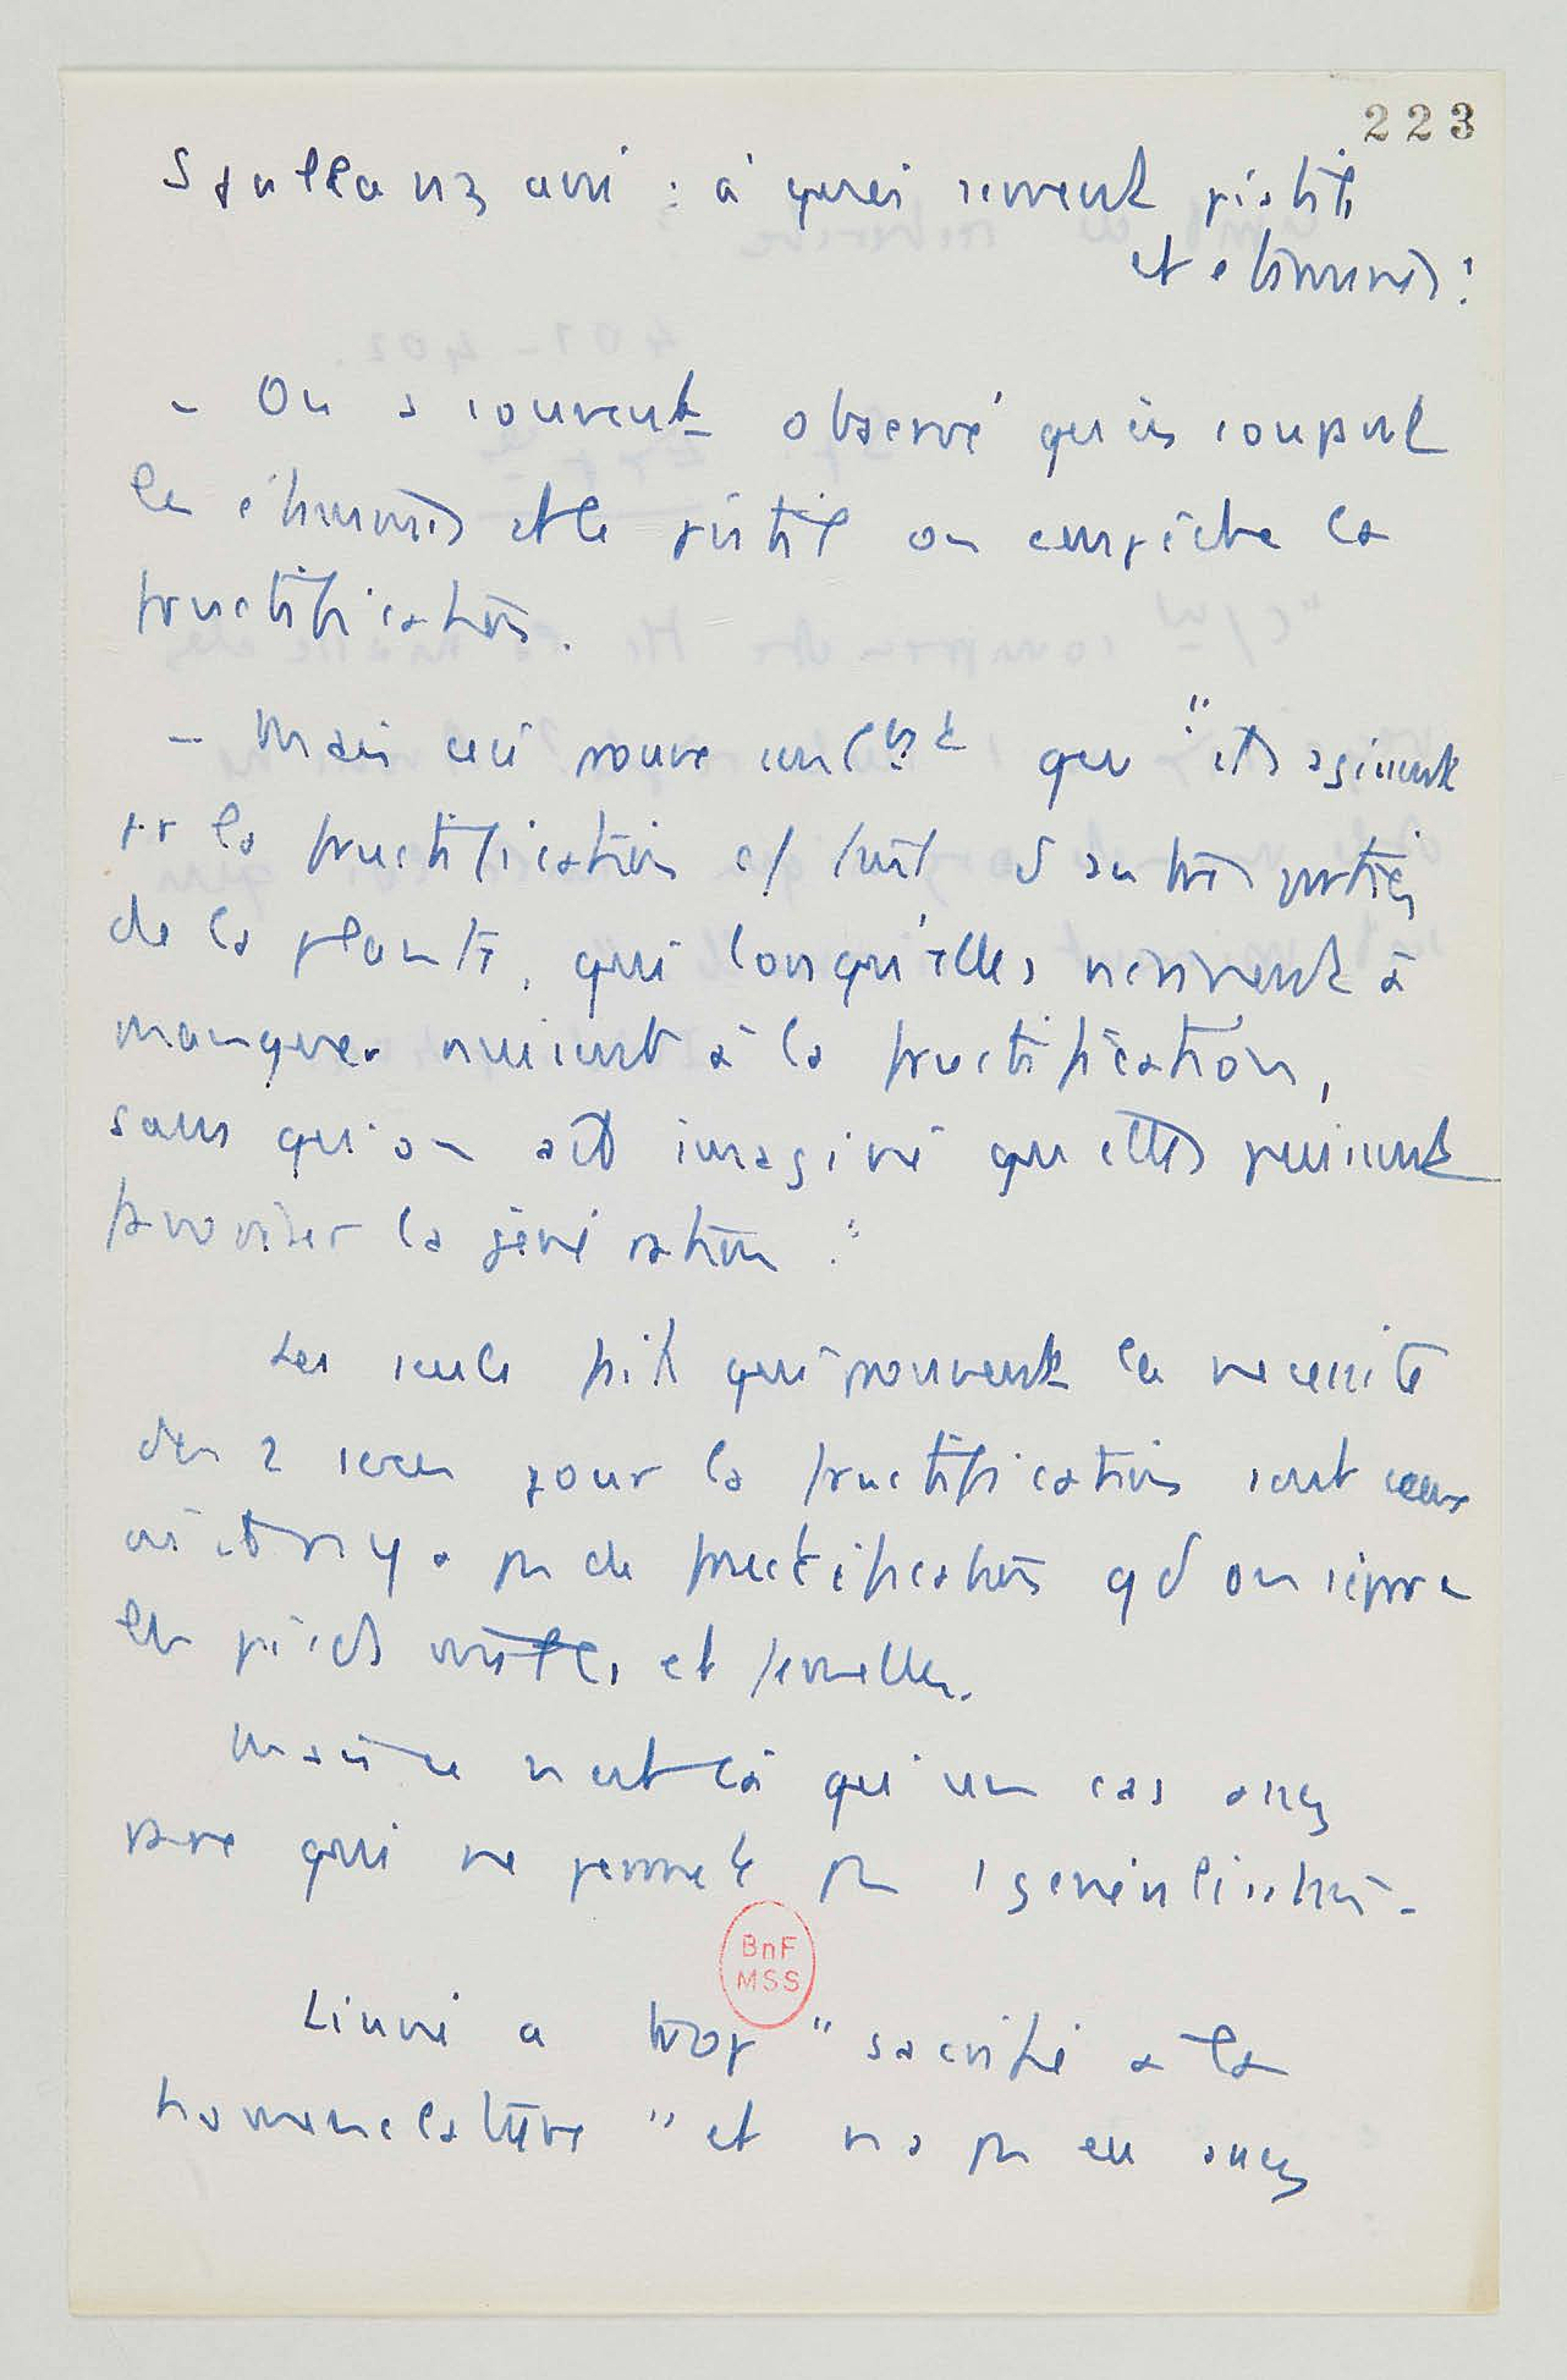 223
Spallanzani : à quoi servent pistils
et étamines ?
- On a souvent observé qu'en coupant
les étamines et le pistil on empêche la
fructification.
- Mais ceci prouve seult qu "ils agissent
pr la fructification c/ font d autres parties
de la plante, qui lorsqu'elles viennent à
manquer nuisent à la fructification,
sans qu'on ait imaginé qu elles puissent
favoriser la génération "
Les seuls faits qui prouvent la nécessité
des 2 sexes pour la fructification sont ceux
où il n y a pas de fructification qd on sépare
les pieds mâles et femelles.
Mais ce n est là qu'un cas assez
rare qui ne permet pas 1 généralisation.
BnF
MSS
Linné a trop "sacrifié a la
nomenclature" et n a pas eu assez